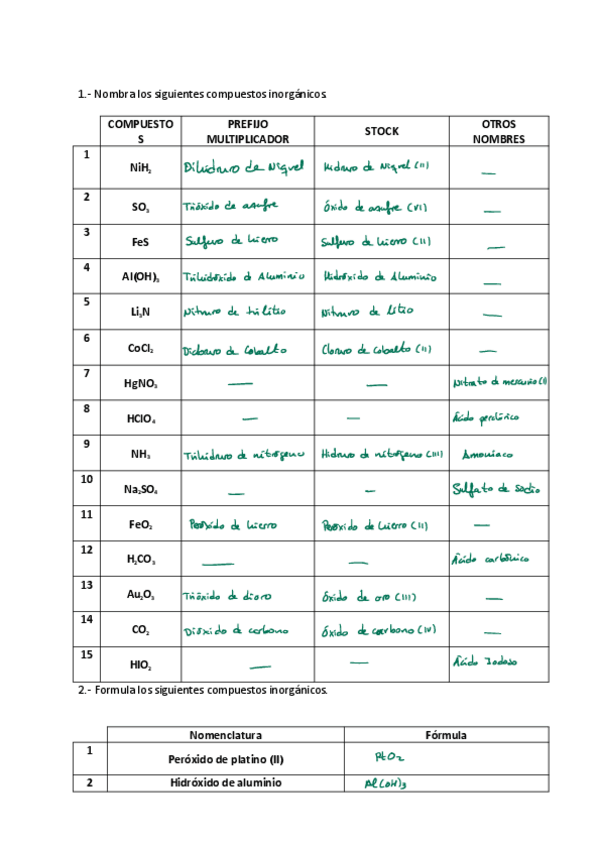 1.- Nombra los siguientes compuestos inorgánicos.
COMPUESTO
S
PREFIJO
MULTIPLICADOR
STOCK
OTROS
NOMBRES
1 NiH₂ Dihidruro de Niquel Hidruro de Niquel (II) —
2 SO₃ Trióxido de azufre Óxido de azufre (VI) —
3 FeS Sulfuro de hierro Sulfuro de hierro (II) —
4 Al(OH)₃ Trihidróxido d Aluminio Hidróxido de Aluminio —
5 Li₃N Nitruro de trilitio Nitruro de litio —
6 CoCl₂ Dicloruro de Cobalto Cloruro de cobalto (II) —
7 HgNO₃ — — Nitrato d mercurio (I)
8 HClO₄ — — Ácido perclórico
9 NH₃ Trihidruro d nitrógeno Hidruro d nitrógeno (III) Amoniaco
10 Na₂SO₄ — — Sulfato de sodio
11 FeO₂ Peróxido de hierro Peróxido de hierro (II) —
12 H₂CO₃ — — Ácido carbónico
13 Au₂O₃ Trióxido de dioro Óxido de oro (III) —
14 CO₂ Dióxido de carbono Óxido de carbono (IV) —
15 HIO₂ — — Ácido Iodoso
2.- Formula los siguientes compuestos inorgánicos.
Nomenclatura Fórmula
1 Peróxido de platino (II) PtO₂
2 Hidróxido de aluminio Al(OH)₃